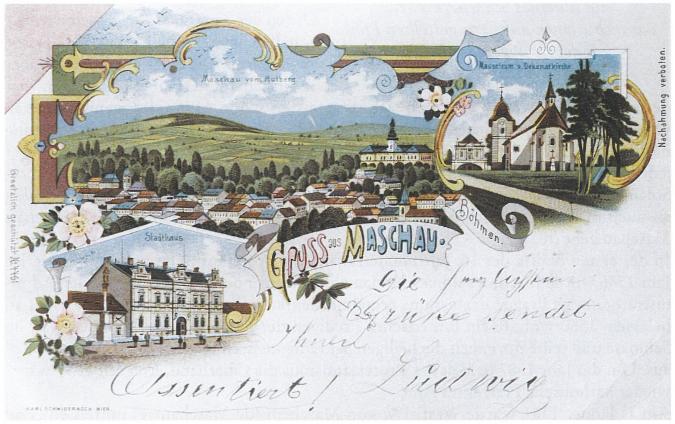 Maschau vom Hutberg
Mausoleum u. Dekanatkirche
Nachahmung verboten.
Gesetzlich geschützt
Böhmen.
Stadthaus
Gruss aus Maschau.
Die
Grüße sendet
Ihnen
Assentiert! Ludwig
KARL SCHWIDERNOCH WIEN